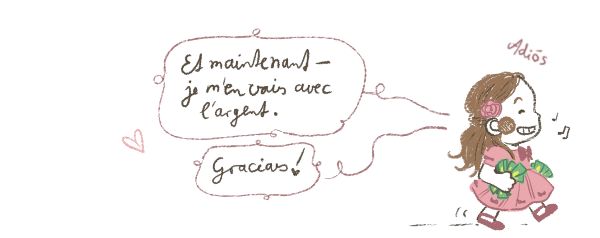 Et maintenant –
je m'en vais avec
l'argent.
Gracias!
Adiós